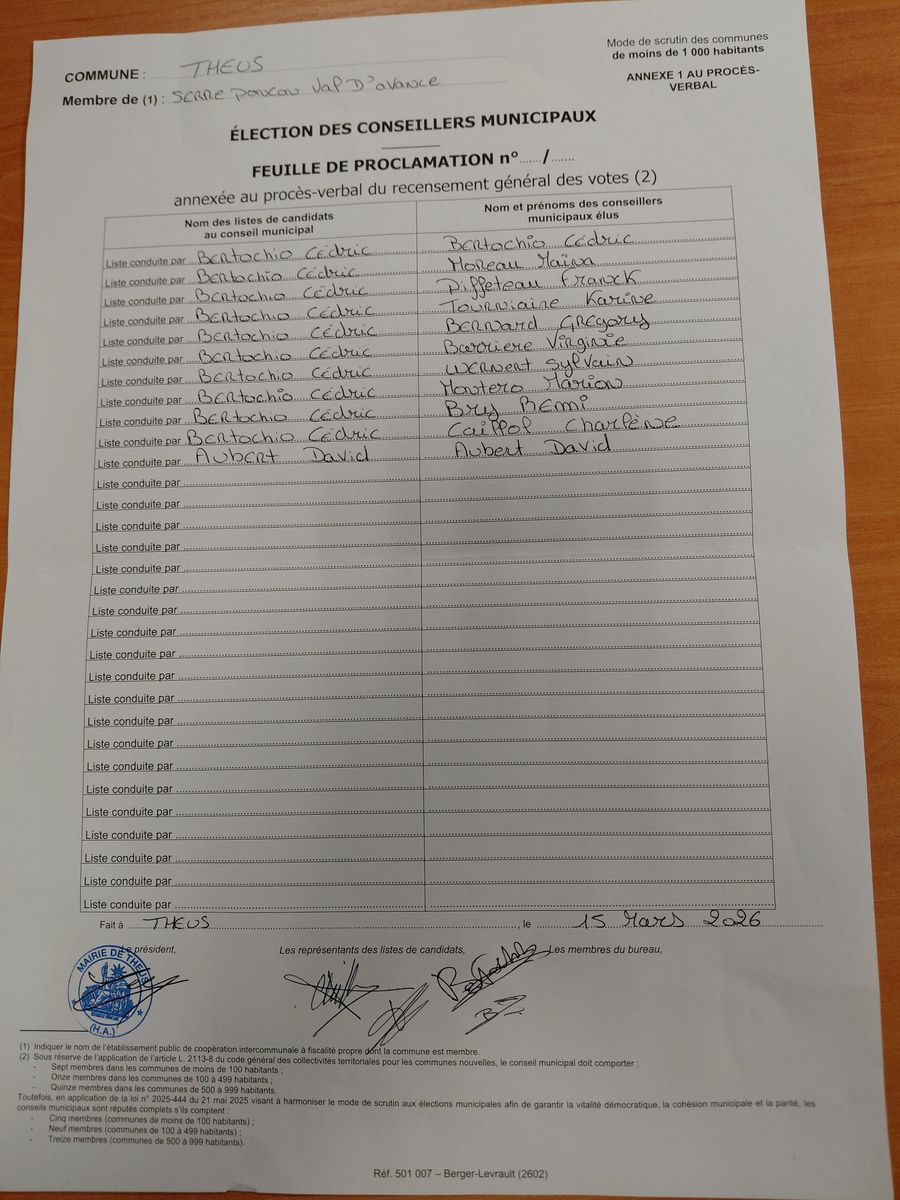 COMMUNE : THEUS
Mode de scrutin des communes
de moins de 1 000 habitants
ANNEXE 1 AU PROCÈS-
VERBAL
Membre de (1) : SERRE PONCON Val D'avance
ÉLECTION DES CONSEILLERS MUNICIPAUX
FEUILLE DE PROCLAMATION n° ...... / ......
annexée au procès-verbal du recensement général des votes (2)
Nom des listes de candidats
au conseil municipal
Nom et prénoms des conseillers
municipaux élus
Liste conduite par Bertochio Cédric Bertochio Cédric
Liste conduite par Bertochio Cédric Moreau Maïva
Liste conduite par Bertochio Cédric Piffeteau Franck
Liste conduite par Bertochio Cédric Tourniaire Karine
Liste conduite par Bertochio Cédric BERNARD GREGORY
Liste conduite par Bertochio Cédric Barriere Virginie
Liste conduite par Bertochio Cédric WERNERT Sylvain
Liste conduite par Bertochio Cédric Montero Marion
Liste conduite par Bertochio Cédric Bry REMI
Liste conduite par Bertochio Cédric Caillol Charlène
Liste conduite par Aubert David Aubert David
Liste conduite par
Liste conduite par
Liste conduite par
Liste conduite par
Liste conduite par
Liste conduite par
Liste conduite par
Liste conduite par
Liste conduite par
Liste conduite par
Liste conduite par
Liste conduite par
Liste conduite par
Liste conduite par
Liste conduite par
Liste conduite par
Liste conduite par
Liste conduite par
Liste conduite par
Liste conduite par
Fait à THEUS , le 15 Mars 2026
Le président,
Les représentants des listes de candidats,
Les membres du bureau,
MAIRIE DE THEUS
(H.A.)
(1) Indiquer le nom de l'établissement public de coopération intercommunale à fiscalité propre dont la commune est membre.
(2) Sous réserve de l'application de l'article L. 2113-8 du code général des collectivités territoriales pour les communes nouvelles, le conseil municipal doit comporter :
- Sept membres dans les communes de moins de 100 habitants ;
- Onze membres dans les communes de 100 à 499 habitants ;
- Quinze membres dans les communes de 500 à 999 habitants.
Toutefois, en application de la loi n° 2025-444 du 21 mai 2025 visant à harmoniser le mode de scrutin aux élections municipales afin de garantir la vitalité démocratique, la cohésion municipale et la parité, les
conseils municipaux sont réputés complets s'ils comptent :
- Cinq membres (communes de moins de 100 habitants) ;
- Neuf membres (communes de 100 à 499 habitants) ;
- Treize membres (communes de 500 à 999 habitants).
Réf. 501 007 – Berger-Levrault (2602)